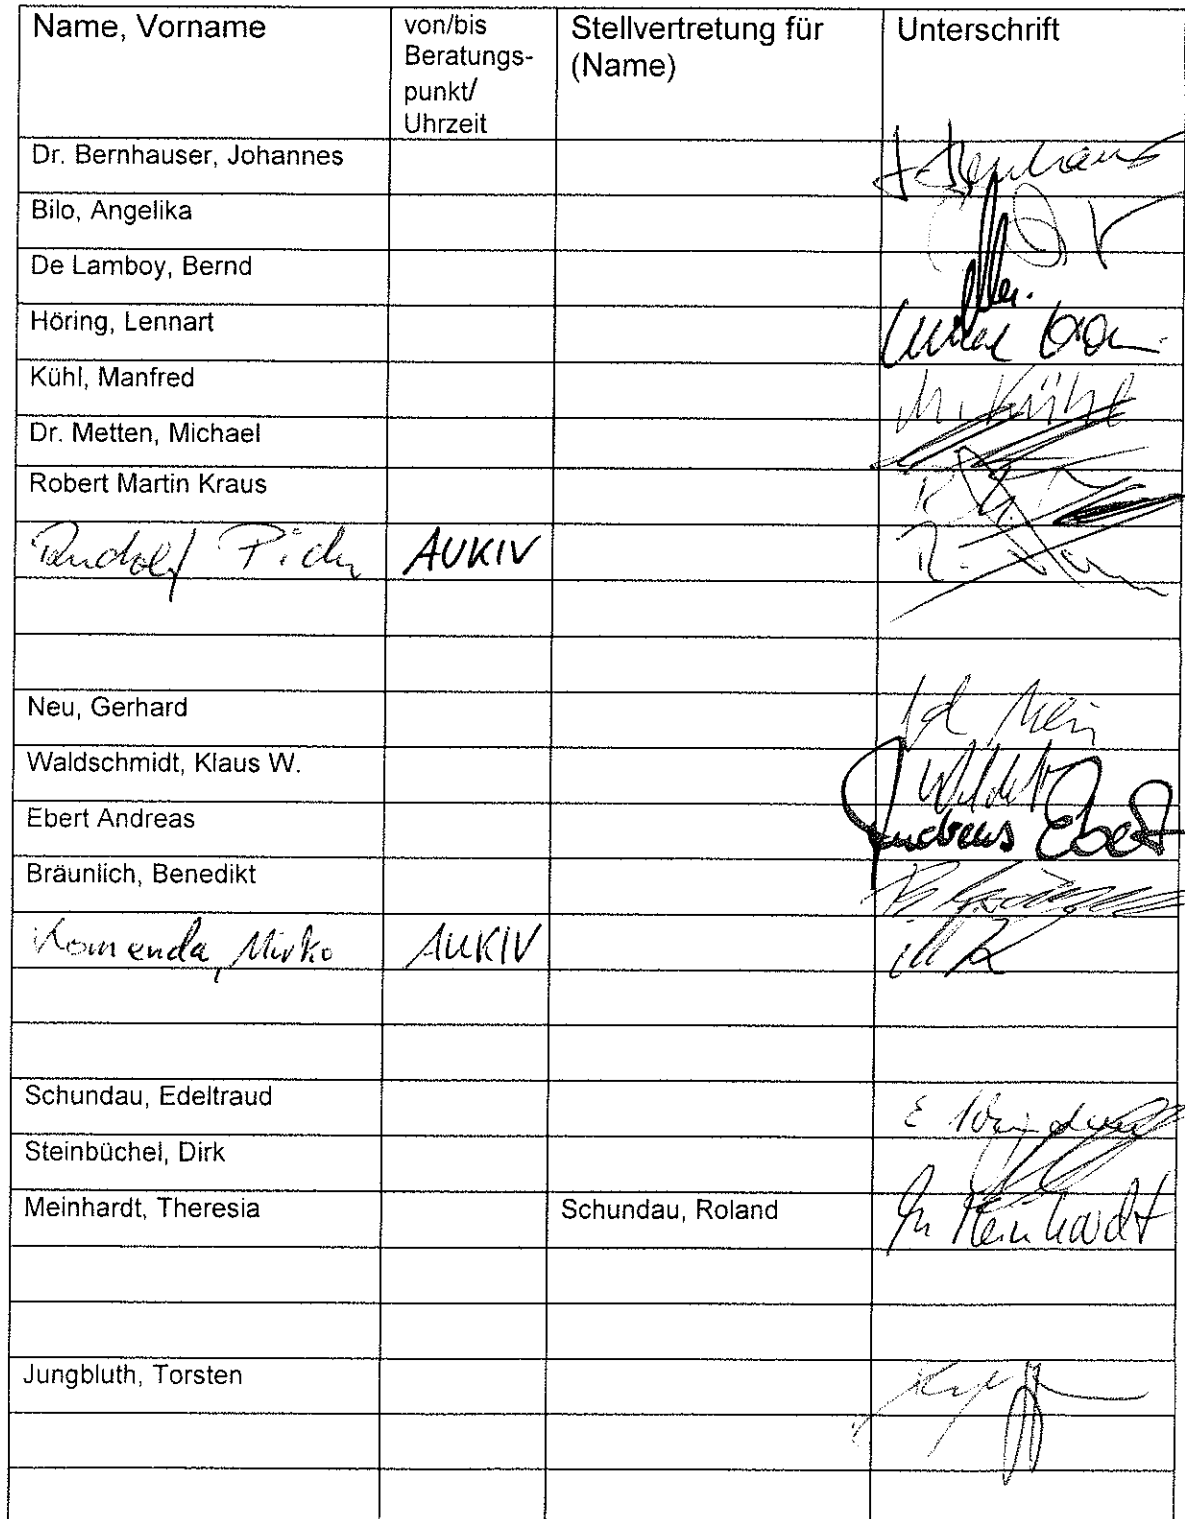 Name, Vorname
von/bis
Beratungs-
punkt/
Uhrzeit
Stellvertretung für
(Name)
Unterschrift
Dr. Bernhauser, Johannes
Bilo, Angelika
De Lamboy, Bernd
Höring, Lennart
Kühl, Manfred M. Kühl
Dr. Metten, Michael
Robert Martin Kraus
Rudolf AUKIV
Neu, Gerhard
Waldschmidt, Klaus W.
Ebert Andreas Andreas Ebert
Bräunlich, Benedikt
Komenda, Mirko AUKIV
Schundau, Edeltraud
Steinbüchel, Dirk
Meinhardt, Theresia Schundau, Roland Meinhardt
Jungbluth, Torsten